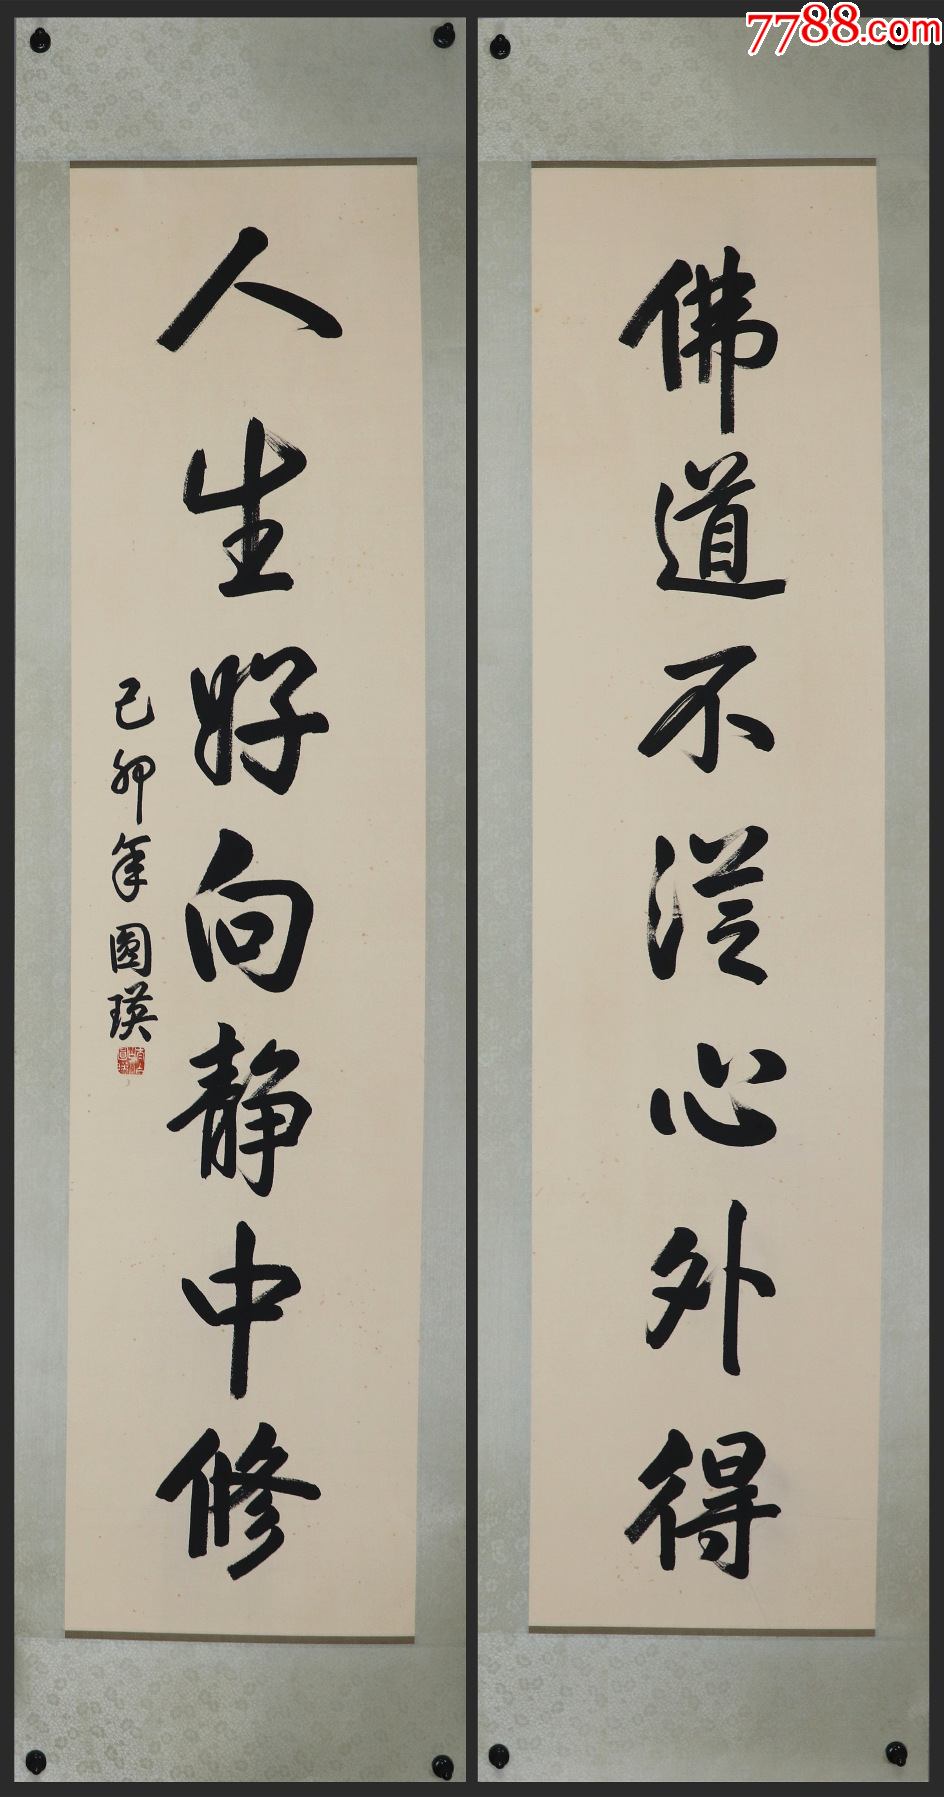 7788.com
佛道不從心外得
人生好向靜中修
己卯年圓瑛